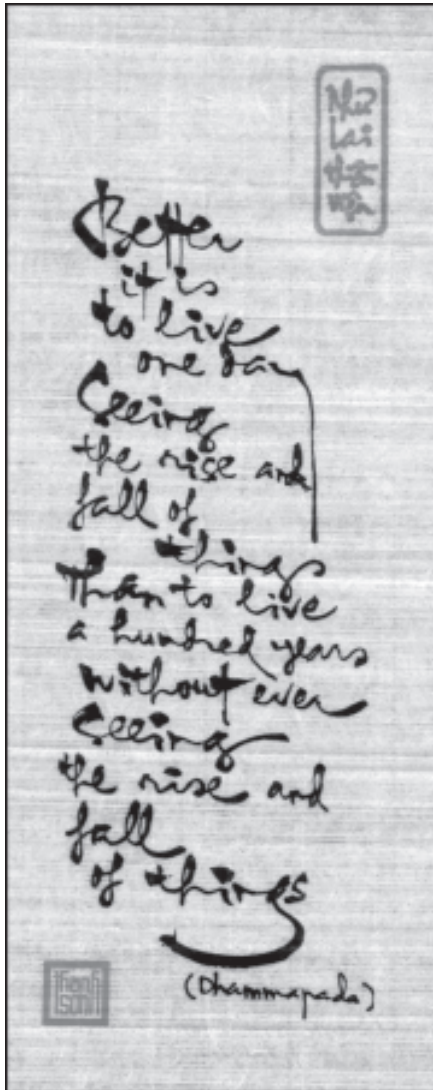 Như
Lai
Better
it is
to live
one day
Seeing
the rise and
fall of
things
Than to live
a hundred years
without ever
Seeing
the rise and
fall
of things
(Dhammapada)